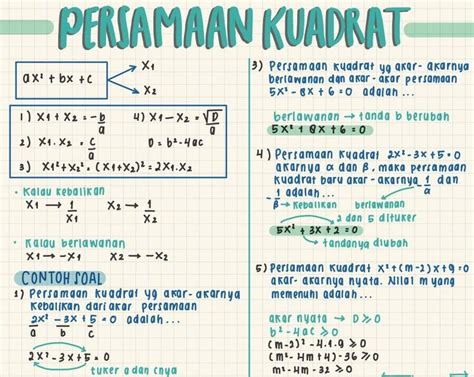 PERSAMAAN KUADRAT
ax² + bx + c
x₁
x₂
1) x₁ + x₂ = -b/a
4) x₁ - x₂ = √D/a
2) x₁ . x₂ = c/a
D = b² - 4ac
3) x₁² + x₂² = (x₁ + x₂)² = 2x₁ . x₂
• Kalau kebalikan
x₁ → 1/x₁ x₂ → 1/x₂
• Kalau berlawanan
x₁ → -x₁ x₂ → -x₂
CONTOH SOAL
1) Persamaan kuadrat yg akar-akarnya
kebalikan dari akar persamaan
2x² - 3x + 5 = 0 adalah...
a b c
2x² - 3x + 5 = 0
tuker a dan c nya
3) Persamaan kuadrat yg akar-akarnya
berlawanan dgn akar-akar persamaan
5x² - 8x + 6 = 0 adalah ...
berlawanan → tanda b berubah
5x² + 8x + 6 = 0
4) Persamaan kuadrat 2x² - 3x + 5 = 0
akarnya α dan β, maka persamaan
kuadrat baru akar-akarnya -1/α dan
-1/β adalah...
→ kebalikan berlawanan
2 dan 5 dituker
5x² + 3x + 2 = 0
→ tandanya diubah
5) Persamaan kuadrat x² + (m-2)x + 9 = 0
akar-akarnya nyata. Nilai m yang
memenuhi adalah...
akar nyata → D ≥ 0
b² - 4ac ≥ 0
(m-2)² - 4.1.9 ≥ 0
(m² - 4m + 4) - 36 ≥ 0
m² - 4m - 32 ≥ 0